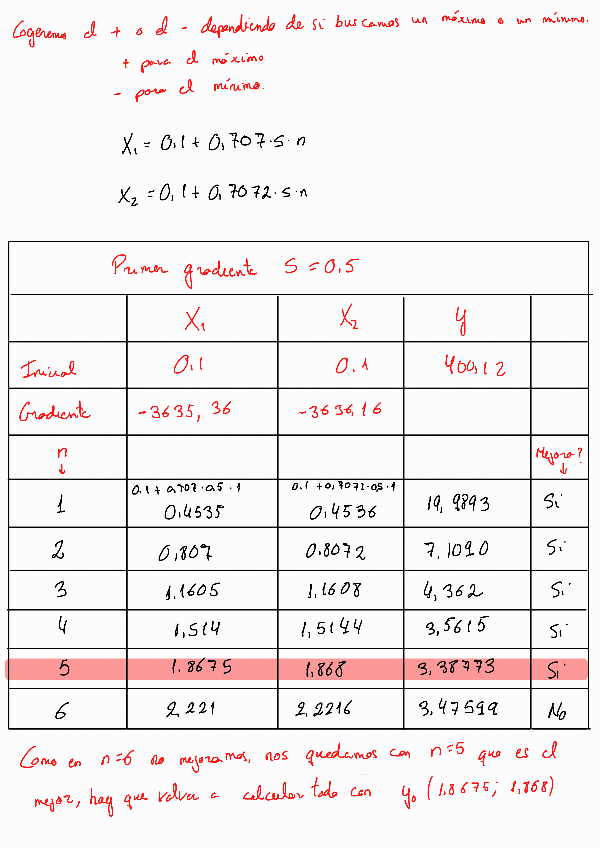 Cogeremos el + o el - dependiendo de si buscamos un máximo o un mínimo.
+ para el máximo
- para el mínimo.
X₁ = 0,1 + 0,707·s·n
X₂ = 0,1 + 0,7072·s·n
Primer gradiente S = 0,5
X₁ X₂ y
Inicial 0.1 0.1 400,12
Gradiente -3635,36 -3636,16
n ↓ Mejora? ↓
0.1 + 0,707·0,5·1 0.1 + 0,7072·0,5·1
1 0,4535 0,4536 19,9893 Si
2 0,807 0.8072 7,1020 Si
3 1,1605 1,1608 4,362 Si
4 1,514 1,5144 3,5615 Si
5 1.8675 1,868 3,38773 Si
6 2,221 2,2216 3,47599 No
Como en n=6 no mejoramos, nos quedamos con n=5 que es el
mejor, hay que volver a calcular todo con y₀ (1,8675; 1,868)